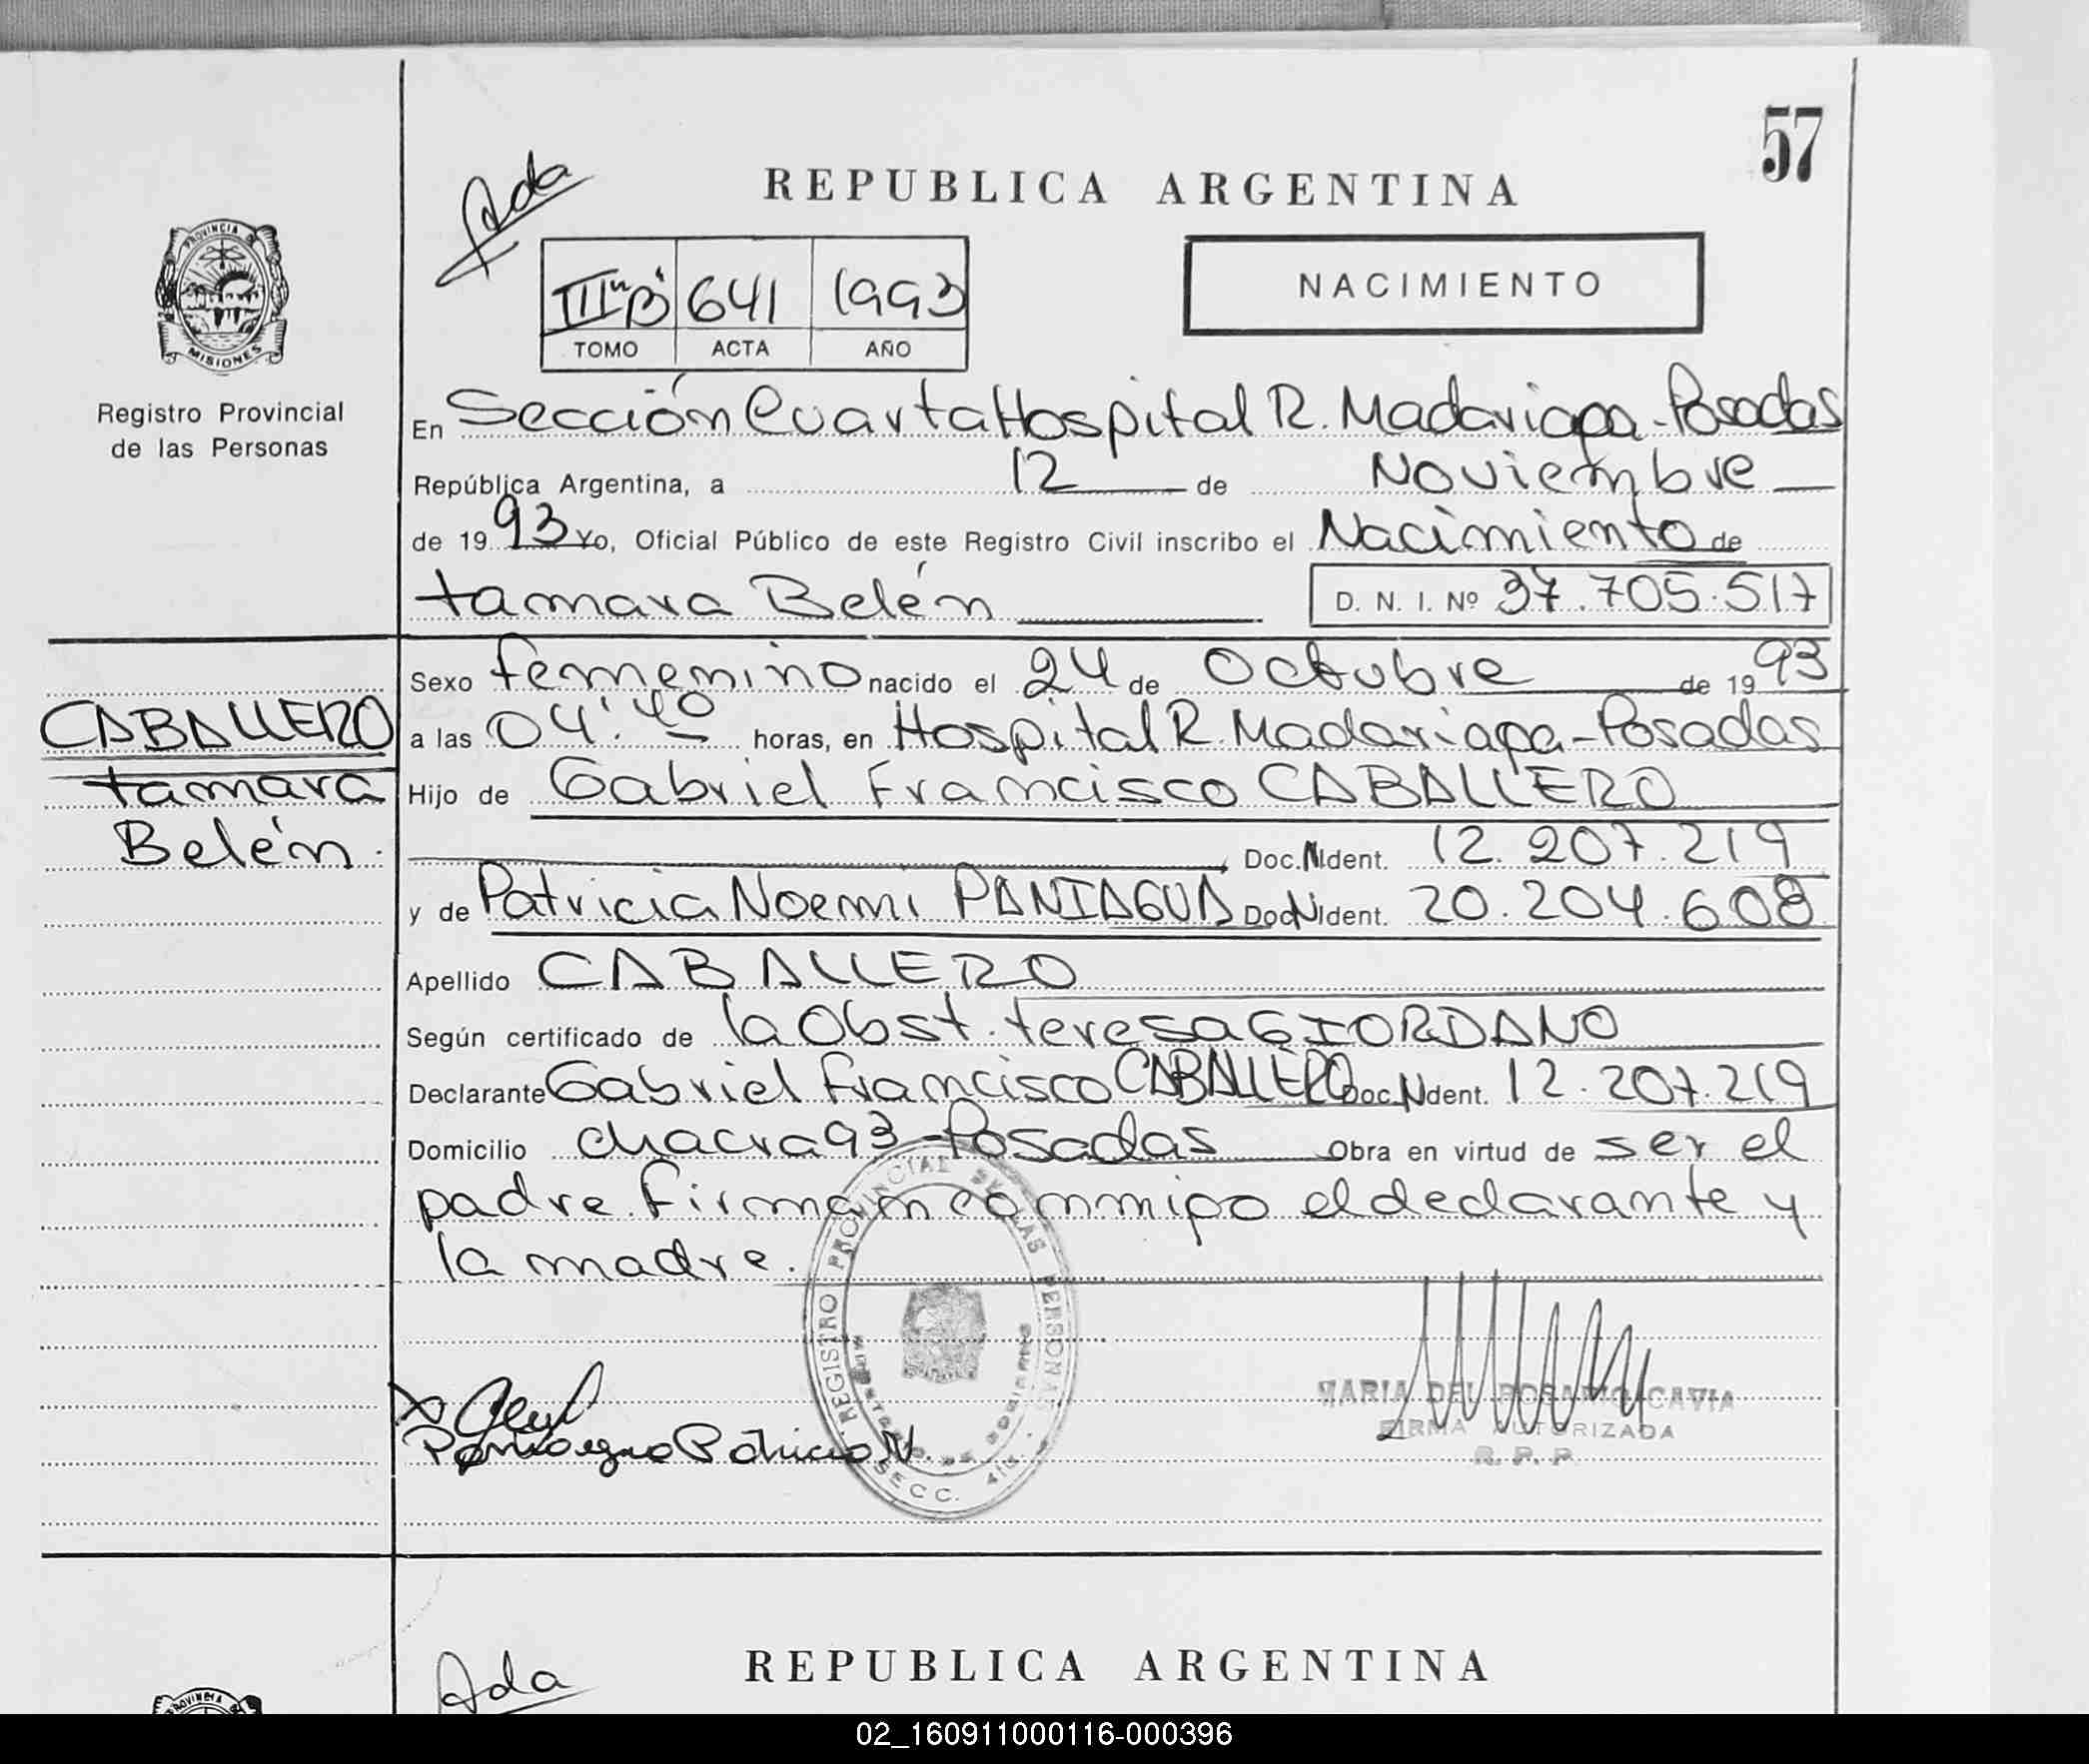 57
Ada
REPUBLICA ARGENTINA
PROVINCIA DE
MISIONES
Registro Provincial
de las Personas
III "B" 641 1993
TOMO ACTA AÑO
NACIMIENTO
En Sección Cuarta Hospital R. Madariaga - Posadas
República Argentina, a 12 de Noviembre
de 1993 Yo, Oficial Público de este Registro Civil inscribo el Nacimiento de
tamara Belén D. N. I. Nº 37.705.517
Sexo femenino nacido el 24 de Octubre de 1993
CABALLERO
tamara
Belén.
a las 04:40 horas, en Hospital R. Madariaga - Posadas
Hijo de Gabriel Francisco CABALLERO
Doc. N Ident. 12.207.219
y de Patricia Noemi PANIAGUA Doc N Ident. 20.204.608
Apellido CABALLERO
Según certificado de la Obst. teresa GIORDANO
Declarante Gabriel Francisco CABALLERO Doc. N Ident. 12.207.219
Domicilio chacra 93 - Posadas Obra en virtud de ser el
padre. Firman conmigo el declarante y
la madre.
REGISTRO PROVINCIAL DE LAS PERSONAS
SECC. 4ta.
MARIA DEL ROSARIO CAVIA
FIRMA AUTORIZADA
R. P. P.
Paniagua Patricia N.
Ada
REPUBLICA ARGENTINA
PROVINCIA
02_160911000116-000396